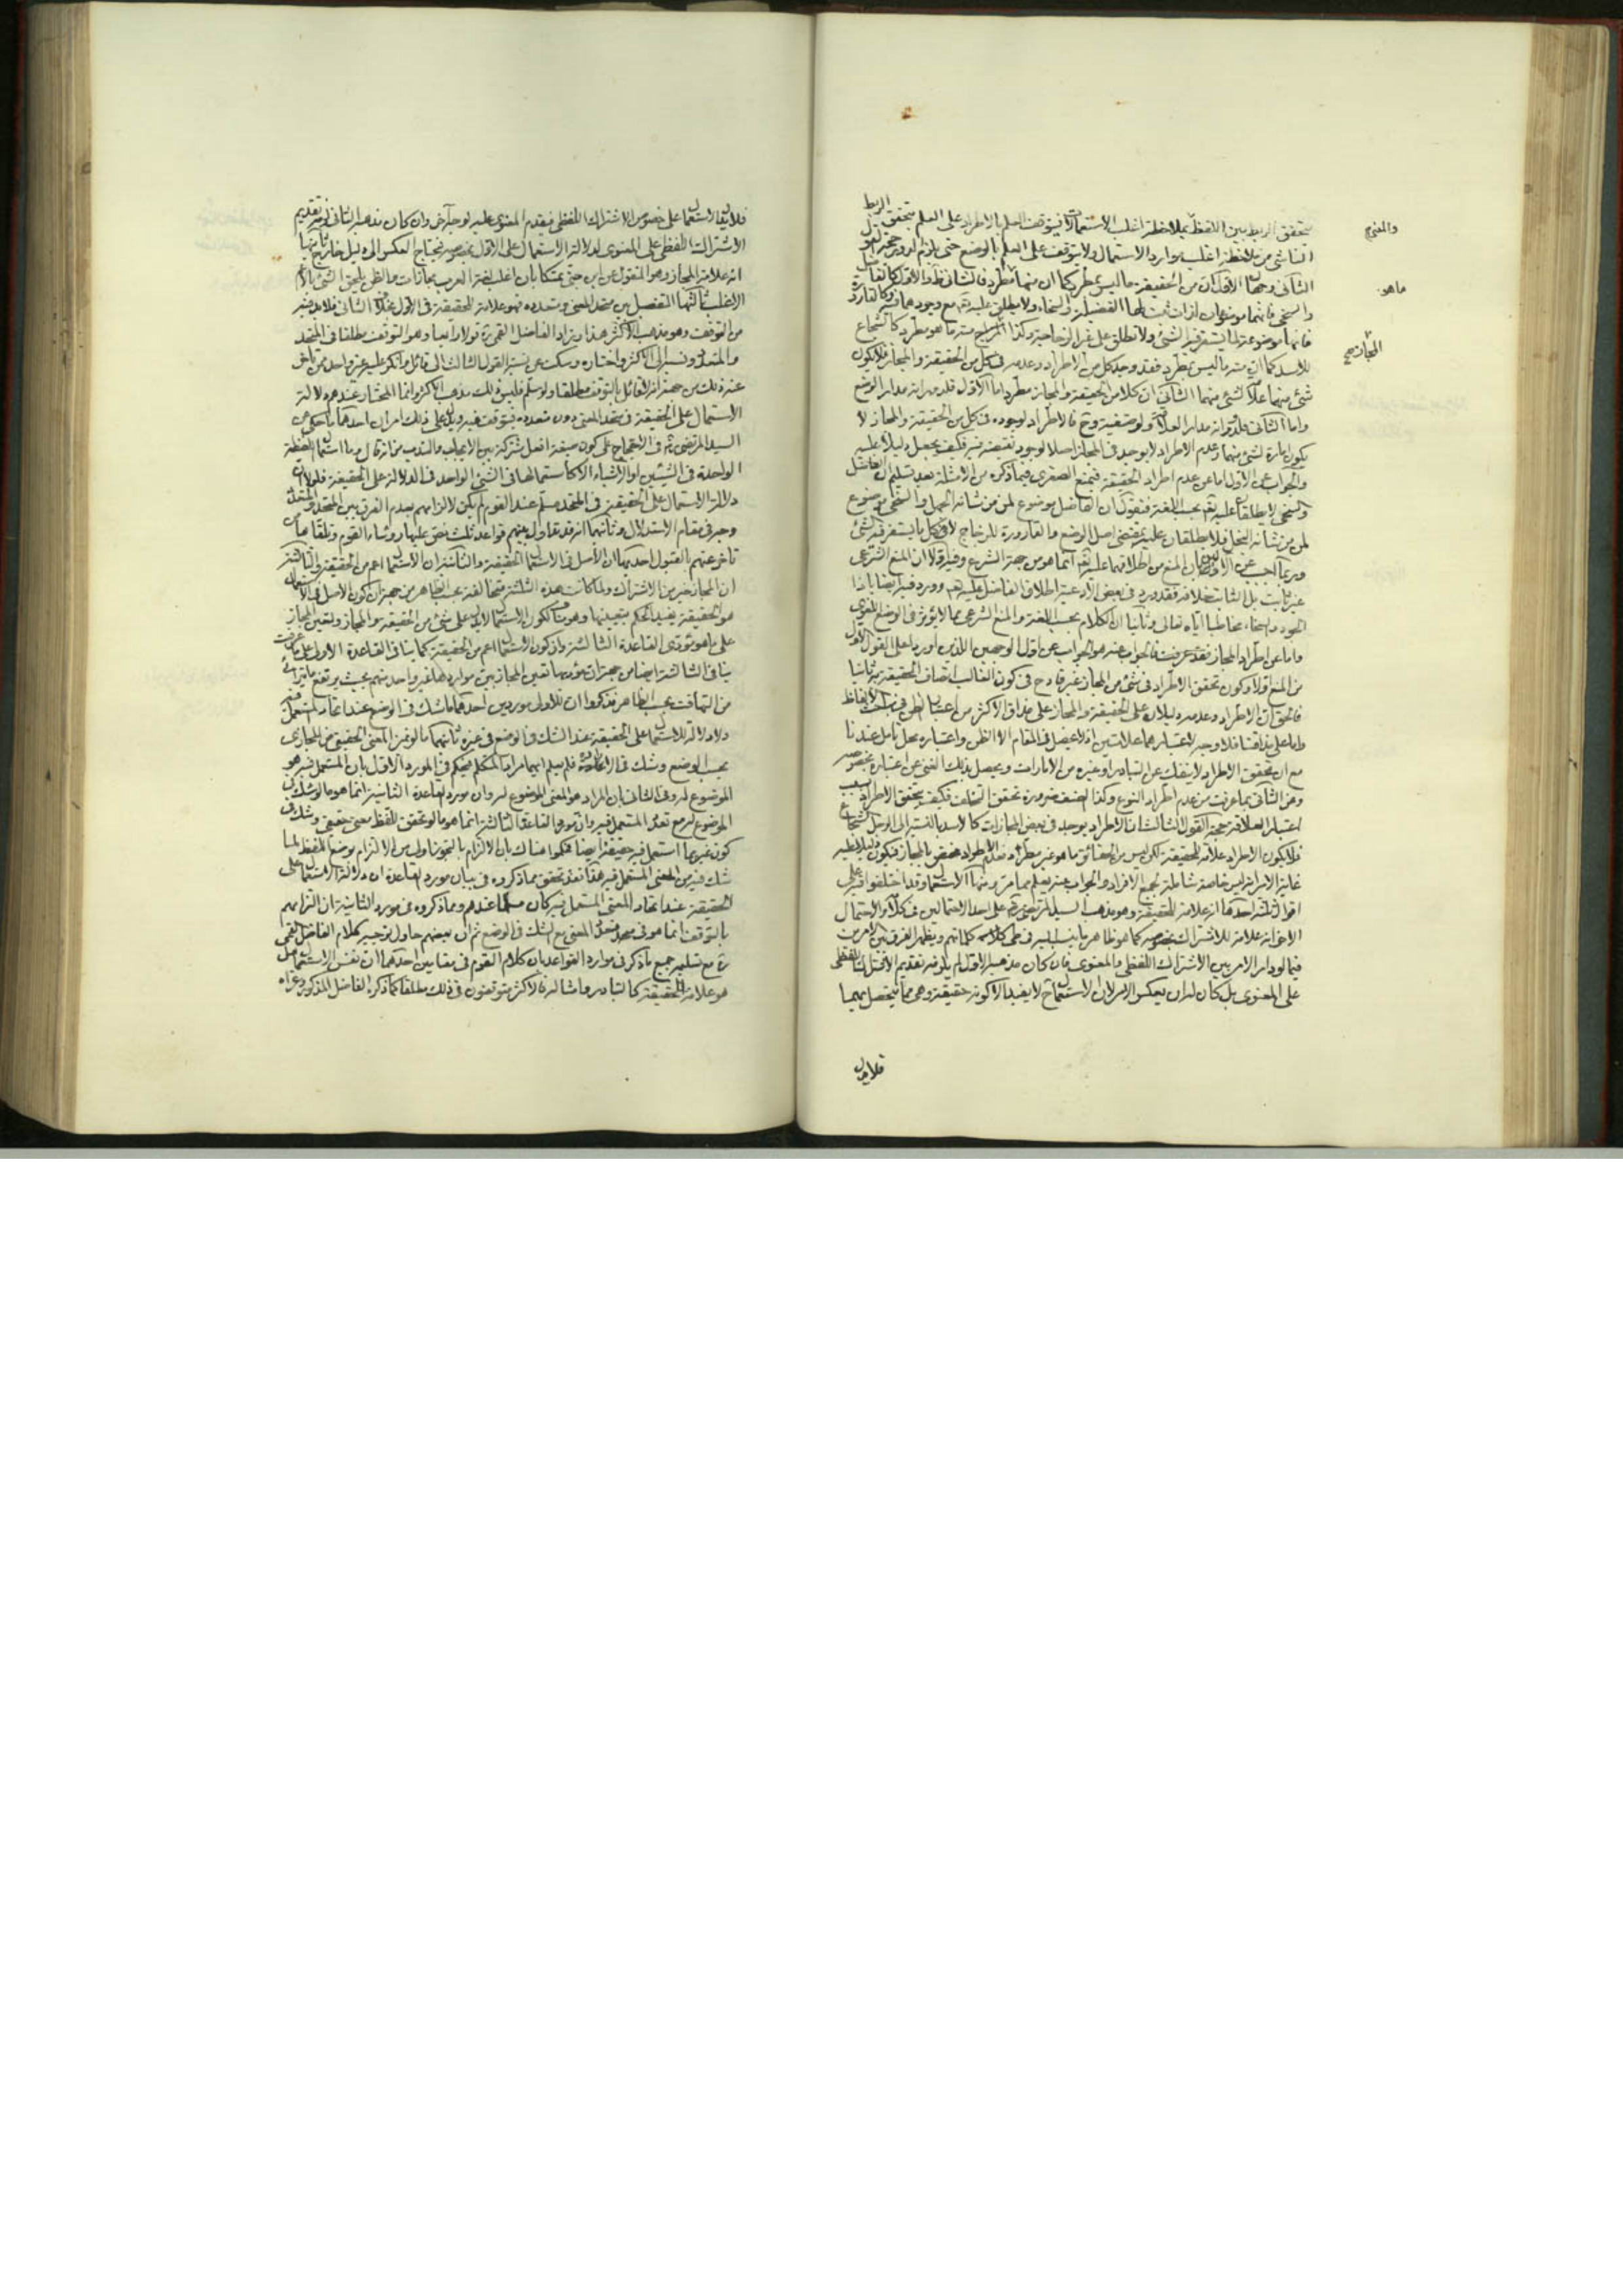 والمعنى
ماهو
المجاز صح
بتحقق الربط بين اللفظ بملاحظة اغلب الاستعمالات فيتوقف العلم بالاطراد على العلم بتحقق الربط
الناشى من ملاحظة اغلب موارد الاستعمال ولا يتوقف على العلم بالوضع حتى يلزم الدور حجة القول
الثانى وجهان الاول ان من الحقيقة ما ليس بمطرد كما ان منها مطرد
والسخى فانهما موضوعان لذات ثبت لها الفضل والسخاء ولا يطلق عليه تع مع وجودهما فيه وكالقارورة
فانها موضوعة لما يستقر فيه الشئ ولا تطلق على غير الزجاجة وكذا المجاز منه ما هو مطرد كالشجاع
للاسد كما ان منه ما ليس بمطرد فقد وجد كل من الاطراد وعدمه فى كل من الحقيقة والمجاز فلا يكون
شئ منهما علامة لشئ منهما الثانى ان كلا من الحقيقة والمجاز مطرد اما الاول فلدورانه مدار الوضع
واما الثانى فلدورانه مدار العلاقة ولو صنفية وح فالاطراد لوجوده فى كل من الحقيقة والمجاز لا
يكون امارة لشئ منهما وعدم الاطراد لا يوجد فى المجاز اصلا لوجود نقيضه فيه فكيف يجعل دليلا عليه
والجواب عن الاول اما عن عدم اطراد الحقيقة فبمنع الصغرى فيما ذكره من الامثلة بعد تسليم ان الفاضل
والسخى لا يطلقان عليه تع بحسب اللغة فنقول ان الفاضل موضوع لمن من شانه الجهل والسخى موضوع
لمن من شانه البخل فلا يطلقان عليه بمقتضى اصل الوضع والقارورة للزجاج لا لكل ما يستقر فيه الشئ
وربما اجيب عن الاولين بان المنع من اطلاقهما عليه تع انما هو من جهة الشرع وفيه اولا ان المنع الشرعى
غير ثابت بل الثابت خلافه فقد ورد فى بعض الادعية اطلاق الفاضل عليه تع وورد فيها ايضا يا ذا
الجود والسخاء مخاطبا اياه تعالى وثانيا ان الكلام بحسب اللغة والمنع الشرعى مما لا يؤثر فى الوضع اللغوى
واما عن اطراد المجاز فقد عرفت فالجواب عنه هو الجواب عن اول الوجهين اللذين اوردا على القول الاول
من المنع اولا وكون تحقق الاطراد فى شئ من المجاز غير قادح فى كون الغالب اتصاف الحقيقة به ثانيا
فالحق ان الاطراد وعدمه دليلان على الحقيقة والمجاز على مذاق الاكثر من اعتبار الظن فى مباحث الالفاظ
واما على مذاقنا فلا وجه لاعتبارهما علامتين اذ لا يحصل فى المقام الا الظن واعتباره محل تامل عندنا
مع ان تحقق الاطراد لا ينفك عن التبادر او غيره من الامارات ويحصل بذلك الغنى عن اعتباره بخصوصه
وعن الثانى بما عرفت من عدم اطراد النوع وكذا الصنف ضرورة تحقق التخلف فكيف يتحقق الاطراد بسبب
اعتبار العلاقة حجة القول الثالث ان الاطراد يوجد فى بعض المجازات كالاسد بالنسبة الى الرجل الشجاع
فلا يكون الاطراد علامة للحقيقة لكن ليس من الحقائق ما هو غير مطرد فعدم الاطراد مختص بالمجاز فيكون دليلا عليه
غاية الامر انه ليس خاصة شاملة لجميع الافراد والجواب عنه يعلم مما مر ومنها الاستعمال وقد اختلفوا فيه على
اقوال ثلثة احدها انه علامة للحقيقة وهو مذهب السيد المرتضى ره على احد الاحتمالين فى كلامه والاحتمال
الاخر انه علامة للاشتراك بخصوصه كما هو ظاهر ما ينسب اليه فى طى كلماتهم ويظهر الفرق بين الامرين
فيما لو دار الامر بين الاشتراك اللفظى والمعنوى فان كان مذهبه الاول لم يلزمه تقديم الاشتراك اللفظى
على المعنوى بل كان له ان يعكس الامر لان الاستعمال ح لا يفيد الا كونه حقيقة وهى مما يتحصل بهما
فلا يدل
فلا يدل الاستعمال على خصوص الاشتراك اللفظى فيقدم المعنوى عليه لوجه آخر وان كان مذهبه الثانى لزمه تقديم
الاشتراك اللفظى على المعنوى لدلالة الاستعمال على الاول بخصوصه فيحتاج العكس الى دليل خارج ثانيها
انه علامة المجاز وهو المنقول عن ابن جنى متمسكا بان اغلب لغة العرب مجازات والظن يلحق الشئ بالاعم
الاغلب ثالثها التفصيل بين متحد المعنى ومتعدده فهو علامة للحقيقة فى الاول بخلاف الثانى فلا بد فيه
من التوقف وهو مذهب الاكثر هذا وزاد الفاضل القمى ره قولا رابعا وهو التوقف مطلقا فى المتحد
والمتعدد ونسبه الى الاكثر واختاره وسكت عن نسبة القول الثالث الى قائل وانكر عليه غير واحد من تاخر
عنه ذلك من جهة انه القائل بالتوقف مطلقا ولو سلم فليس ذلك مذهب الاكثر وانما المختار عندهم دلالة
الاستعمال على الحقيقة فى متحد المعنى دون متعدده فيتوقف فيه ويدل على ذلك امران احدهما ما حكى عن
السيد المرتضى ره فى الاحتجاج على كون صيغة افعل مشتركة بين الايجاب والندب من انه قال وما استعمال اللفظة
الواحدة فى الشيئين او الاشياء الا كاستعمالها فى الشئ الواحد فى الدلالة على الحقيقة فلولا ان
دلالة الاستعمال على الحقيقة فى المتحد مسلم عند القوم لم يكن لالزامهم بعدم الفرق بين المتحد والمتعدد
وجه فى مقام الاستدلال وثانيهما انه قد تداول بينهم قواعد ثلث نص عليها رؤساء القوم وتلقاها من
تاخر عنهم بالقبول احديها ان الاصل فى الاستعمال الحقيقة والثانية ان الاستعمال اعم من الحقيقة والثالثة
ان المجاز خير من الاشتراك ولما كانت هذه الثلثة متخالفة بحسب الظاهر من جهة ان كون الاصل فى الاستعمال
هو الحقيقة يفيد الحكم بتعيينها وهو كون الاستعمال لا يدل على شئ من الحقيقة والمجاز وتعين المجاز
على ما هو مؤدى القاعدة الثالثة واذ كون الاستعمال اعم من الحقيقة كما ينافى القاعدة الاولى على ما عرفت
ينافى الثالثة ايضا من جهة ان مؤديها تعين المجاز بين مواردها غير واحد منهم بحيث يرتفع ما يترائى
من التهافت بحسب الظاهر فذكروا ان للاولى موردين احدهما ما شك فى الوضع عند اتحاد المستعمل فيه
ولا دلالة للاستعمال على الحقيقة عند الشك فى الوضع فى غيره ثانيهما ما لو تميز المعنى الحقيقى عن المجازى
بحسب الوضع وشك فى الارادة فلم يعلم ايهما مراد المتكلم فيحكم فى المورد الاول بان المستعمل فيه هو
الموضوع له وفى الثانى بان المراد هو المعنى الموضوع له وان مورد القاعدة الثانية انما هو ما لو شك فى
الموضوع له مع تعدد المستعمل فيه وان مورد القاعدة الثالثة انما هو ما لو تحقق للفظ معنى حقيقى وشك فى
كون غيره مما استعمل فيه حقيقة ايضا فحكموا هناك بان الالتزام بالتجوز اولى من الالتزام بوضع اللفظ لما
شك فيه من المعنى المستعمل فيه هذا فقد تحقق مما ذكروه فى بيان مورد القاعدة ان دلالة الاستعمال على
الحقيقة عند اتحاد المعنى المستعمل فيه كان مسلما عندهم ومما ذكروه فى مورد الثانية ان التزامهم
بالتوقف انما هو فى متعدد المعنى مع الشك فى الوضع ثم ان بعضهم حاول توجيه كلام الفاضل القمى
ره مع تسليم جميع ما ذكر فى موارد القواعد بان كلام القوم فى مقامين احدهما ان نفس الاستعمال هل
هو علامة الحقيقة كالتبادر وامثاله فالاكثر متوقفون فى ذلك مطلقا كما ذكره الفاضل المذكور وعزاه